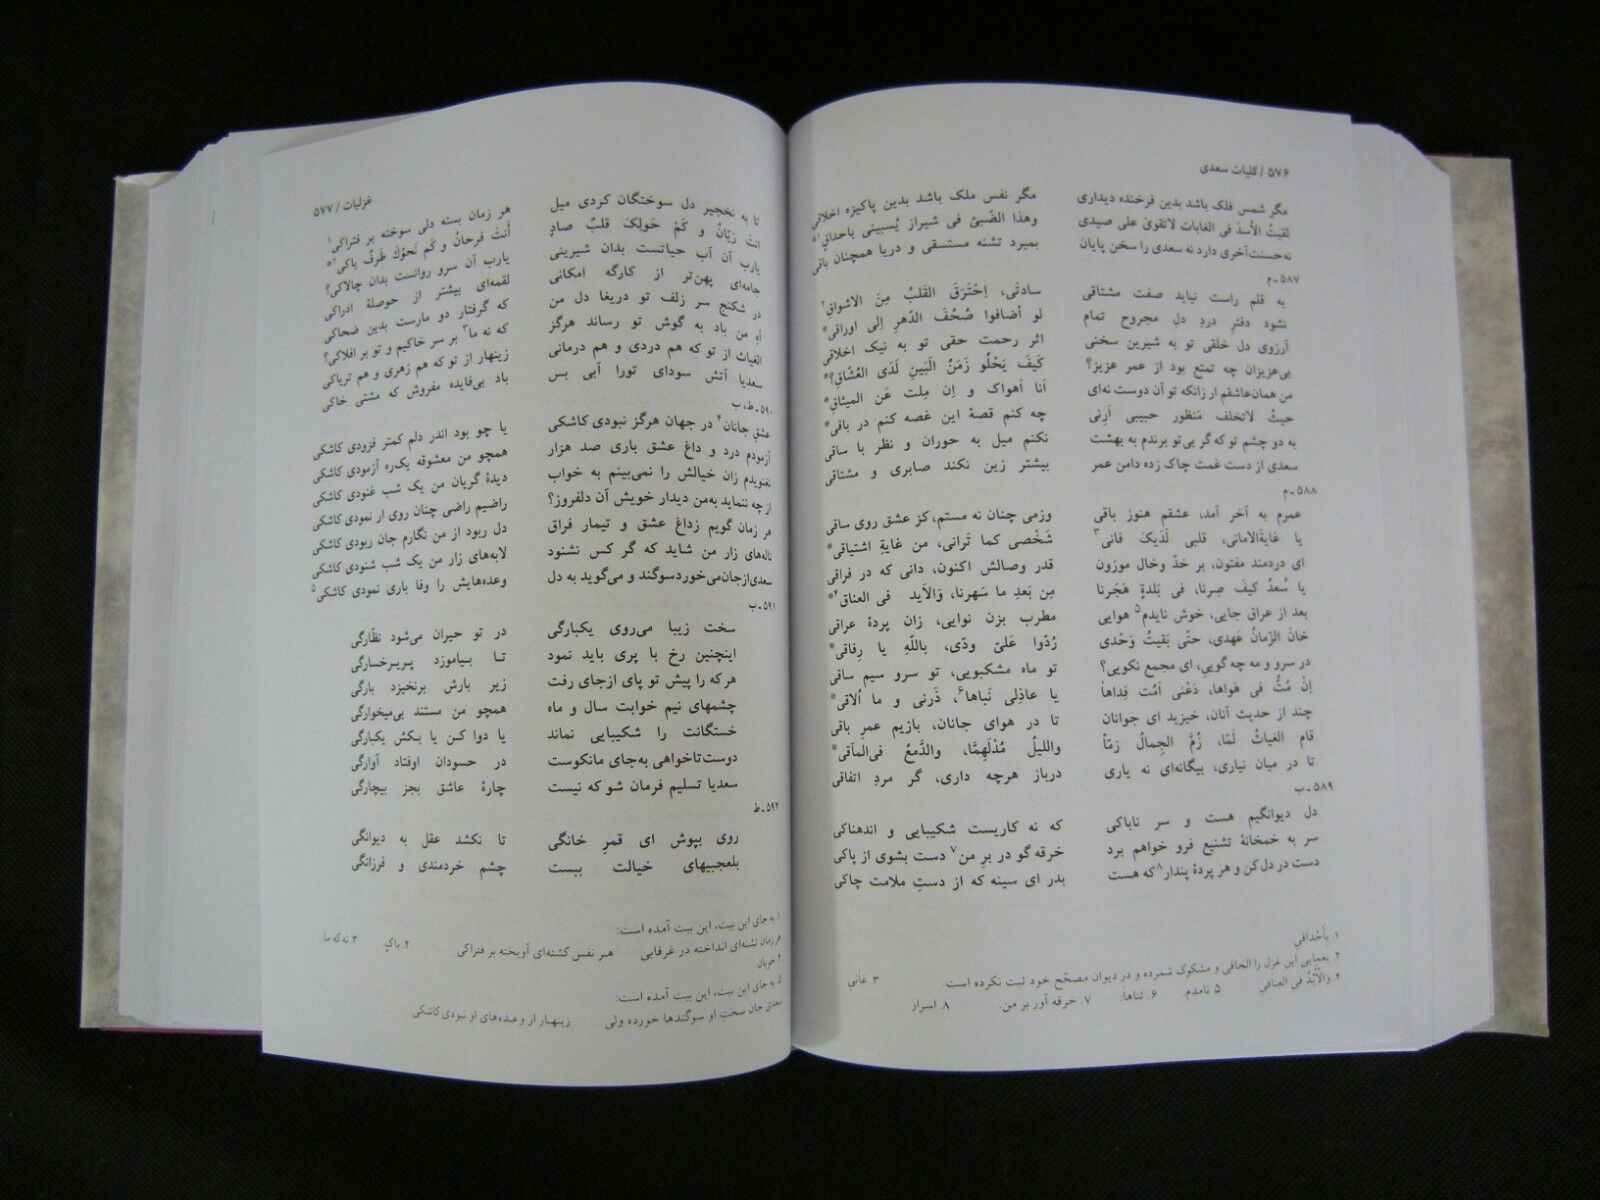 ۵۷۶ / کلیات سعدی
مگر شمس فلک باشد بدین فرخنده دیداری مگر نفس ملک باشد بدین پاکیزه اخلاقی
لقیتُ الأسدَ فی الغابات لاتقویٰ علی صیدی وهذا الظّبیُ فی شیراز یُسبینی باحداقِ۱*
نه‌حسنت‌آخری دارد نه سعدی را سخن پایان بمیرد تشنه مستسقی و دریا همچنان باقی
۵۸۷ـ م
به قلم راست نیاید صفت مشتاقی سادتی، اِحتَرَقَ القَلبُ مِنَ الاشواقِ۲
نشود دفترِ دردِ دلِ مجروح تمام لو أضافوا صُحُفَ الدّهرِ إلی اوراقی*
آرزوی دل خلقی تو به شیرین سخنی اثر رحمت حقی تو به نیک اخلاقی
بی‌عزیزان چه تمتع بود از عمر عزیز؟ کَیفَ یَحْلُو زَمَنُ الْبَینِ لَدَی الْعُشّاقِ؟*
من همان‌عاشقم ار زانکه تو آن دوست نه‌ای اَنا اَهواکَ و اِن مِلتَ عَن المیثاقِ*
حیثُ لاتخلف مَنظور حبیبی اَرِنی چه کنم قصهٔ این غصه کنم در باقی*
به دو چشم تو که گر بی‌تو برندم به بهشت نکنم میل به حوران و نظر با ساقی
سعدی از دست غمت چاک زده دامن عمر بیشتر زین نکند صابری و مشتاقی
۵۸۸ـ م
عمرم به آخر آمد، عشقم هنوز باقی وزمی چنان نه مستم، کز عشق روی ساقی
یا غایةالامانی، قلبی لَدَیکَ فانی۳ شَخْصی کما تَرانی، من غایةِ اشتیاقی*
ای دردمند مفتون، بر خدّ وخال موزون قدر وصالش اکنون، دانی که در فراقی
یا سُعدُ کیفَ صِرنا، فی بَلدةٍ هَجَرنا مِن بَعدِ ما سَهِرنا، وَالاَید فی العناقِ۴*
بعد از عراق جایی، خوش نایدم۵ هوایی مطرب بزن نوایی، زان پردهٔ عراقی
خانَ الزّمانُ عَهدی، حتّی بَقیتُ وَحْدی رُدّوا عَلَیَّ ودّی، باللّهِ یا رِفاقی*
در سرو و مه چه گویی، ای مجمع نکویی؟ تو ماه مشکبویی، تو سرو سیم ساقی
إنْ مُتُّ فی هَواها، دَعْنی اَمُت فِداها یا عاذلی نَباها۶، ذَرنی و ما اُلاقی*
چند از حدیث آنان، خیزید ای جوانان تا در هوای جانان، بازیم عمرِ باقی
قام الغیاثُ لَمّا، زُمَّ الجِمالُ زمّاً واللیلُ مُدْلَهِمّا، والدَّمعُ فی‌المآقی*
تا در میان نیاری، بیگانه‌ای نه یاری درباز هرچه داری، گر مردِ اتفاقی
۵۸۹ـ ب
دل دیوانگیم هست و سر ناباکی که نه کاریست شکیبایی و اندهناکی
سر به خمخانهٔ تشنیع فرو خواهم برد خرقه گو در برِ من۷ دست بشوی از پاکی
دست در دل‌کن و هر پردهٔ پندار۸ که هست بدر ای سینه که از دستِ ملامت چاکی
۱. بأحْداقی
۲. یغمایی این غزل را الحاقی و مشکوک شمرده و در دیوان مصحّح خود ثبت نکرده است. ۳. عانی
۴. وَالْأَیْدُ فی العناقی ۵. نامدم. ۶. ثناها. ۷. خرقه آور بر من. ۸. اسرار
غزلیات / ۵۷۷
تا به نخجیر دل سوختگان کردی میل هر زمان بسته دلی سوخته بر فتراکی۱
انتَ رَیّانُ و کَمْ حَولِکَ قلبٌ صادٍ أنتَ فَرحانُ و کَم نَحوَکَ طَرفٌ باکی۲*
یارب آن آب حیاتست بدان شیرینی یارب آن سرو روانست بدان چالاکی؟
جامه‌ای پهن‌تر از کارگه امکانی لقمه‌ای بیشتر از حوصلهٔ ادراکی
در شکنج سر زلف تو دریغا دل من که گرفتار دو مارست بدین ضحاکی
آهِ من باد به گوش تو رساند هرگز که نه ما۳ بر سر خاکیم و تو بر افلاکی؟
الغیاث از تو که هم دردی و هم درمانی زینهار از تو که هم زهری و هم تریاکی
سعدیا آتش سودای تورا آبی بس باد بی‌فایده مفروش که مشتی خاکی
۵۹۰ـ ط، ب
عشق جانان۴ در جهان هرگز نبودی کاشکی یا چو بود اندر دلم کمتر فزودی کاشکی
آزمودم درد و داغ عشق باری صد هزار همچو من معشوقه یک‌ره آزمودی کاشکی
نغنویدم زان خیالش را نمی‌بینم به خواب دیدهٔ گریان من یک شب غنودی کاشکی
از چه ننماید به‌من دیدار خویش آن دلفروز؟ راضیم راضی چنان روی ار نمودی کاشکی
هر زمان گویم زداغ عشق و تیمار فراق دل ربود از من نگارم جان ربودی کاشکی
ناله‌های زار من شاید که گر کس نشنود لابه‌های زار من یک شب شنودی کاشکی
سعدی‌ازجان‌می‌خوردسوگند و می‌گوید به دل وعده‌هایش را وفا باری نمودی کاشکی۵
۵۹۱ـ ب
سخت زیبا می‌روی یکبارگی در تو حیران می‌شود نظّارگی
اینچنین رخ با پری باید نمود تا بیاموزد پری‌رخسارگی
هرکه را پیش تو پای ازجای رفت زیر بارش برنخیزد بارگی
چشمهای نیم خوابت سال و ماه همچو من مستند بی‌میخوارگی
خستگانت را شکیبایی نماند یا دوا کن یا بکش یکبارگی
دوست‌تاخواهی به‌جای مانکوست در حسودان اوفتاد آوارگی
سعدیا تسلیم فرمان شو که نیست چارهٔ عاشق بجز بیچارگی
۵۹۲ـ ط
روی بپوش ای قمرِ خانگی تا نکشد عقل به دیوانگی
بلعجبیهای خیالت ببست چشم خردمندی و فرزانگی
۱. به جای این بیت، این بیت آمده است:
هر زمان تشنه‌ای انداخته در غرقابی هر نفس کشته‌ای آویخته بر فتراکی ۲. باکٍ ۳. نه که ما
۴. خوبان
۵. به جای این بیت، این بیت آمده است:
سعدی جان سخت او سوگندها خورده ولی زینهار از وعده‌های او نبودی کاشکی